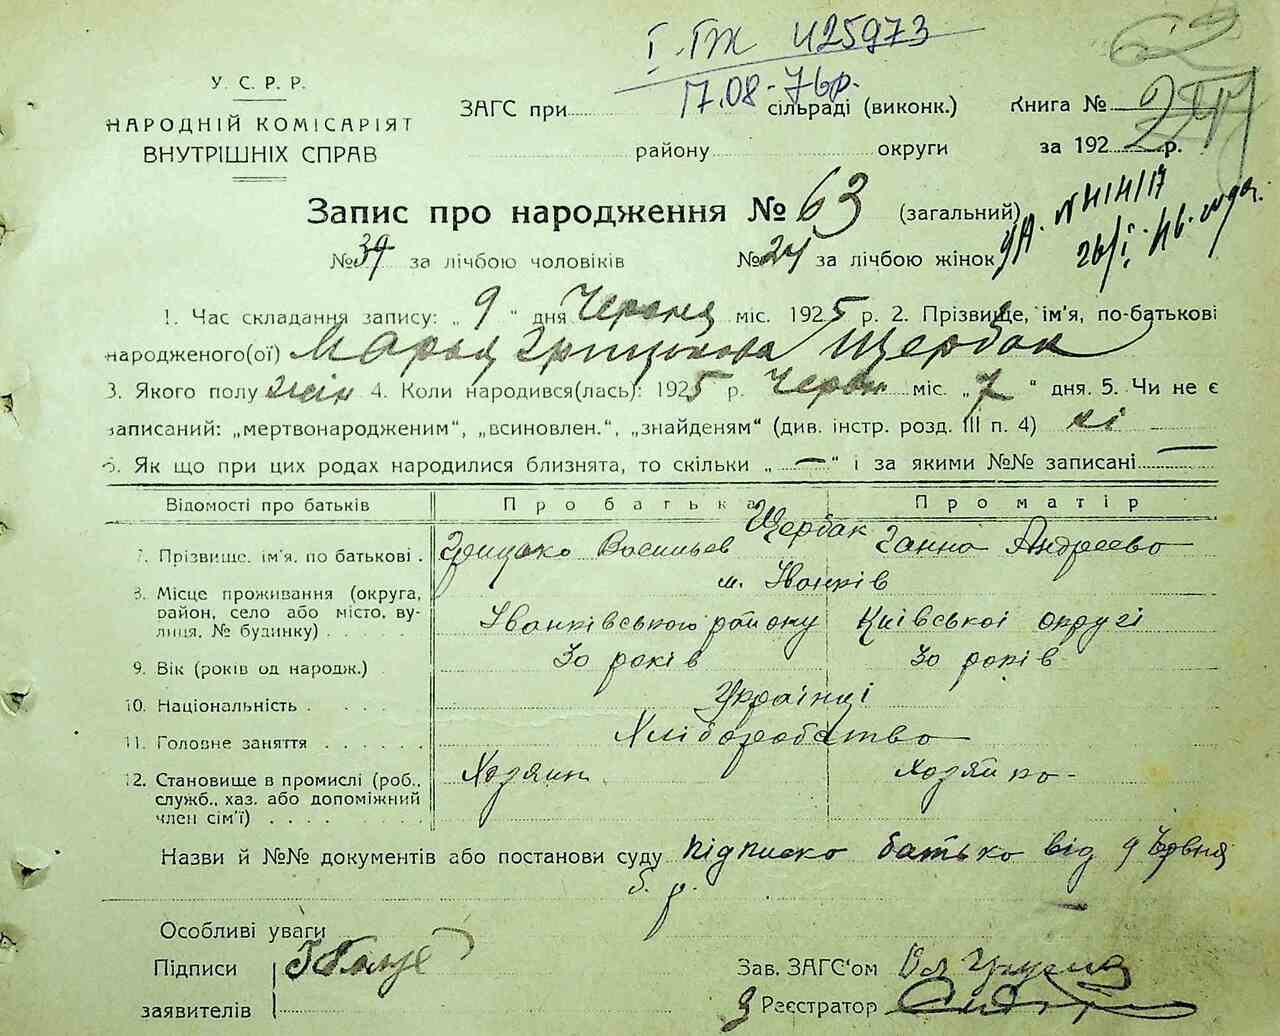 І-ГЖ 425973
17.08-76р.
62
У. С. Р. Р.
НАРОДНІЙ КОМІСАРІЯТ
ВНУТРІШНІХ СПРАВ
ЗАГС при сільраді (виконк.)
району округи
Книга №
за 192 р.
Запис про народження № 63 (загальний)
№ 39 за лічбою чоловіків № 24 за лічбою жінок
1. Час складання запису: „ 9 “ дня Червня міс. 1925 р. 2. Прізвище, ім'я, по-батькові
народженого(ої) Мария Грицькова Щербак
3. Якого полу жін 4. Коли народився(лась): 1925 р. Червн міс. „ 7 “ дня. 5. Чи не є
записаний: „мертвонародженим“, „всиновлен.“, „знайденям“ (див. інстр. розд. III п. 4) ні
6. Як що при цих родах народилися близнята, то скільки „ — “ і за якими №№ записані —
Відомості про батьків Про батька Про матір
Щербак
7. Прізвище, ім'я, по батькові . Грицько Васильев Ганна Андреева
м. Іванків
8. Місце проживання (округа,
район, село або місто, ву-
лиця, № будинку) . . . . Іванківського району Київської округі
9. Вік (років од народж.) 30 років 30 років
10. Національність . . . . Українці
11. Головне заняття . . . . . . Хліборобство
12. Становище в промислі (роб.,
служб., хаз. або допоміжний
член сім'ї) . . . . Хозяин Хозяйка-
Назви й №№ документів або постанови суду підписка батька від 9 Червня
5. р.
Особливі уваги
Підписи
заявителів
Зав. ЗАГС'ом
Реєстратор